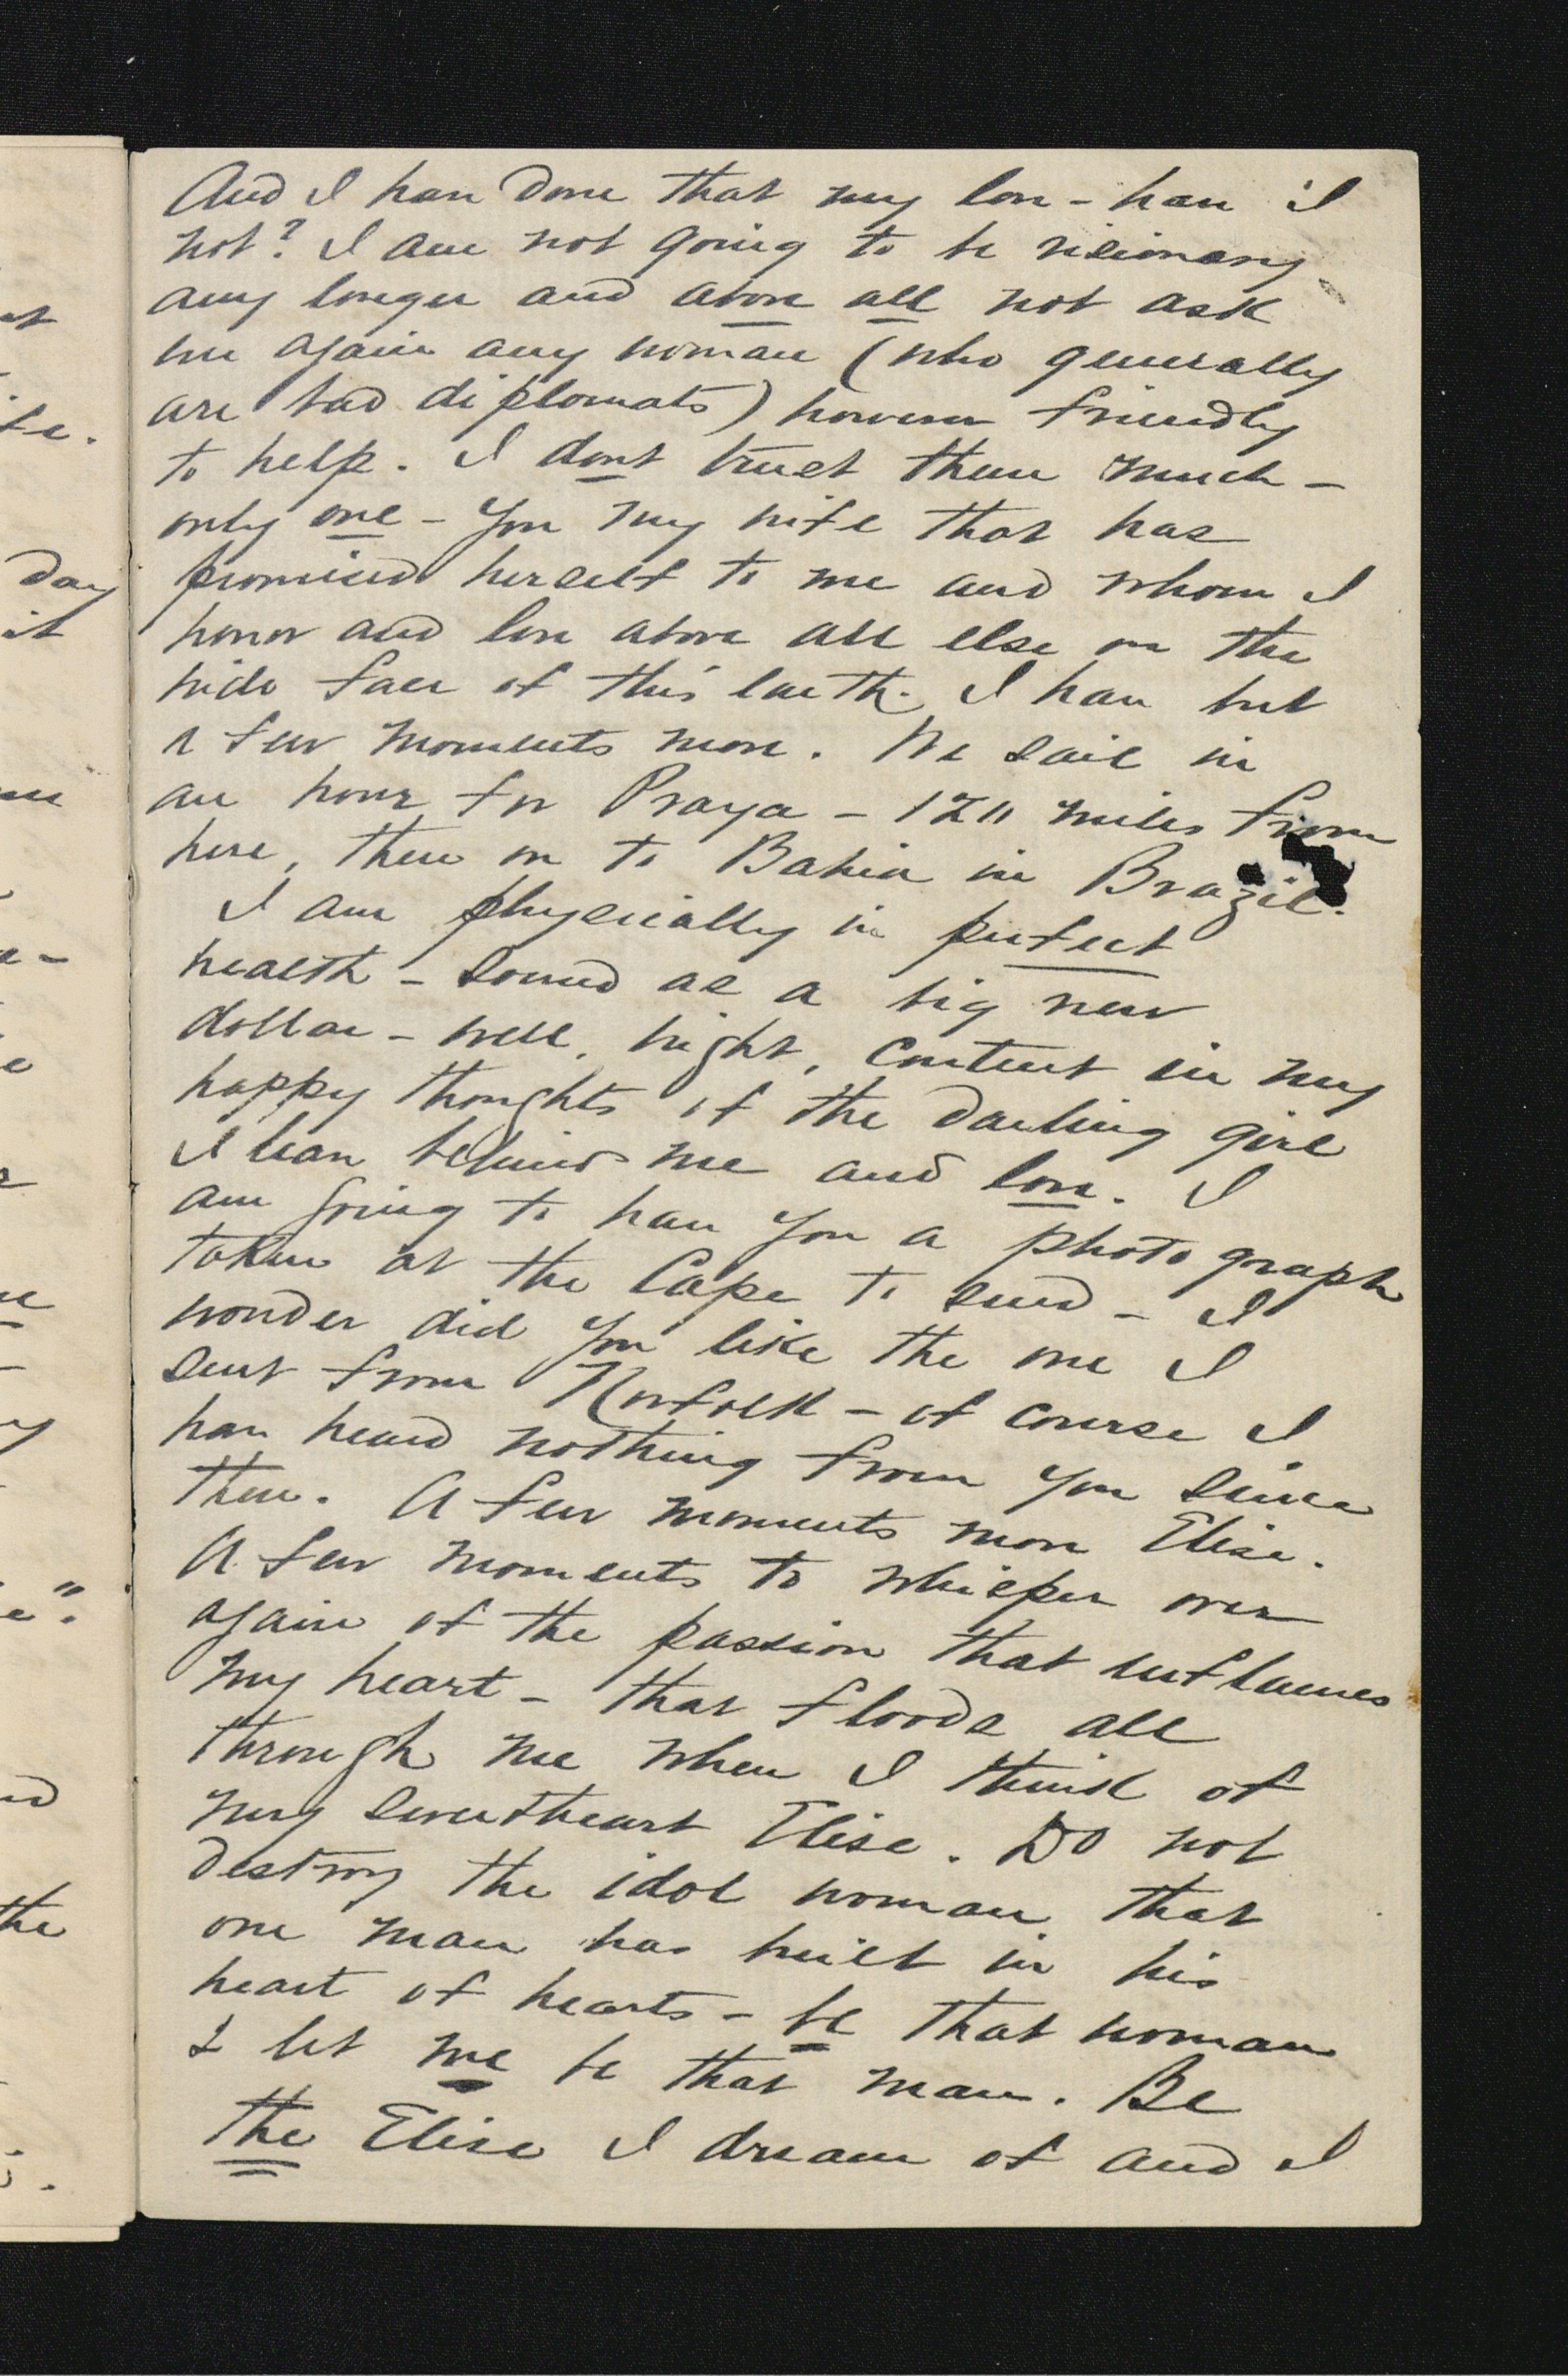 And I have done that my love - have I
not? I am not going to be visionary
any longer and above all not ask
me again any woman (who generally
are bad diplomats) however friendly
to help. I dont trust them much -
only one - you my wife that has
promised herself to me and whom I
honor and love above all else on the
wide face of this earth. I have but
a few moments more. We sail in
an hour for Praya - 120 miles from
here, then on to Bahia in Brazil.
I am physically in perfect
health - sound as a big new
dollar - well, bright, content in my
happy thoughts of the darling girl
I leave behind me and love. I
am going to have you a photograph
taken at the Cape to send - I
wonder did you like the one I
sent from Norfolk - of course I
have heard nothing from you since
then. A few moments more Elise.
A few moments to whisper over
again of the passion that enflames
my heart - that floods all
through me when I think of
my sweetheart Elise. Do not
destroy the idol woman that
one man has built in his
heart of hearts - be that woman
& let me be that man. Be
the Elise I dream of and I
day
it
the